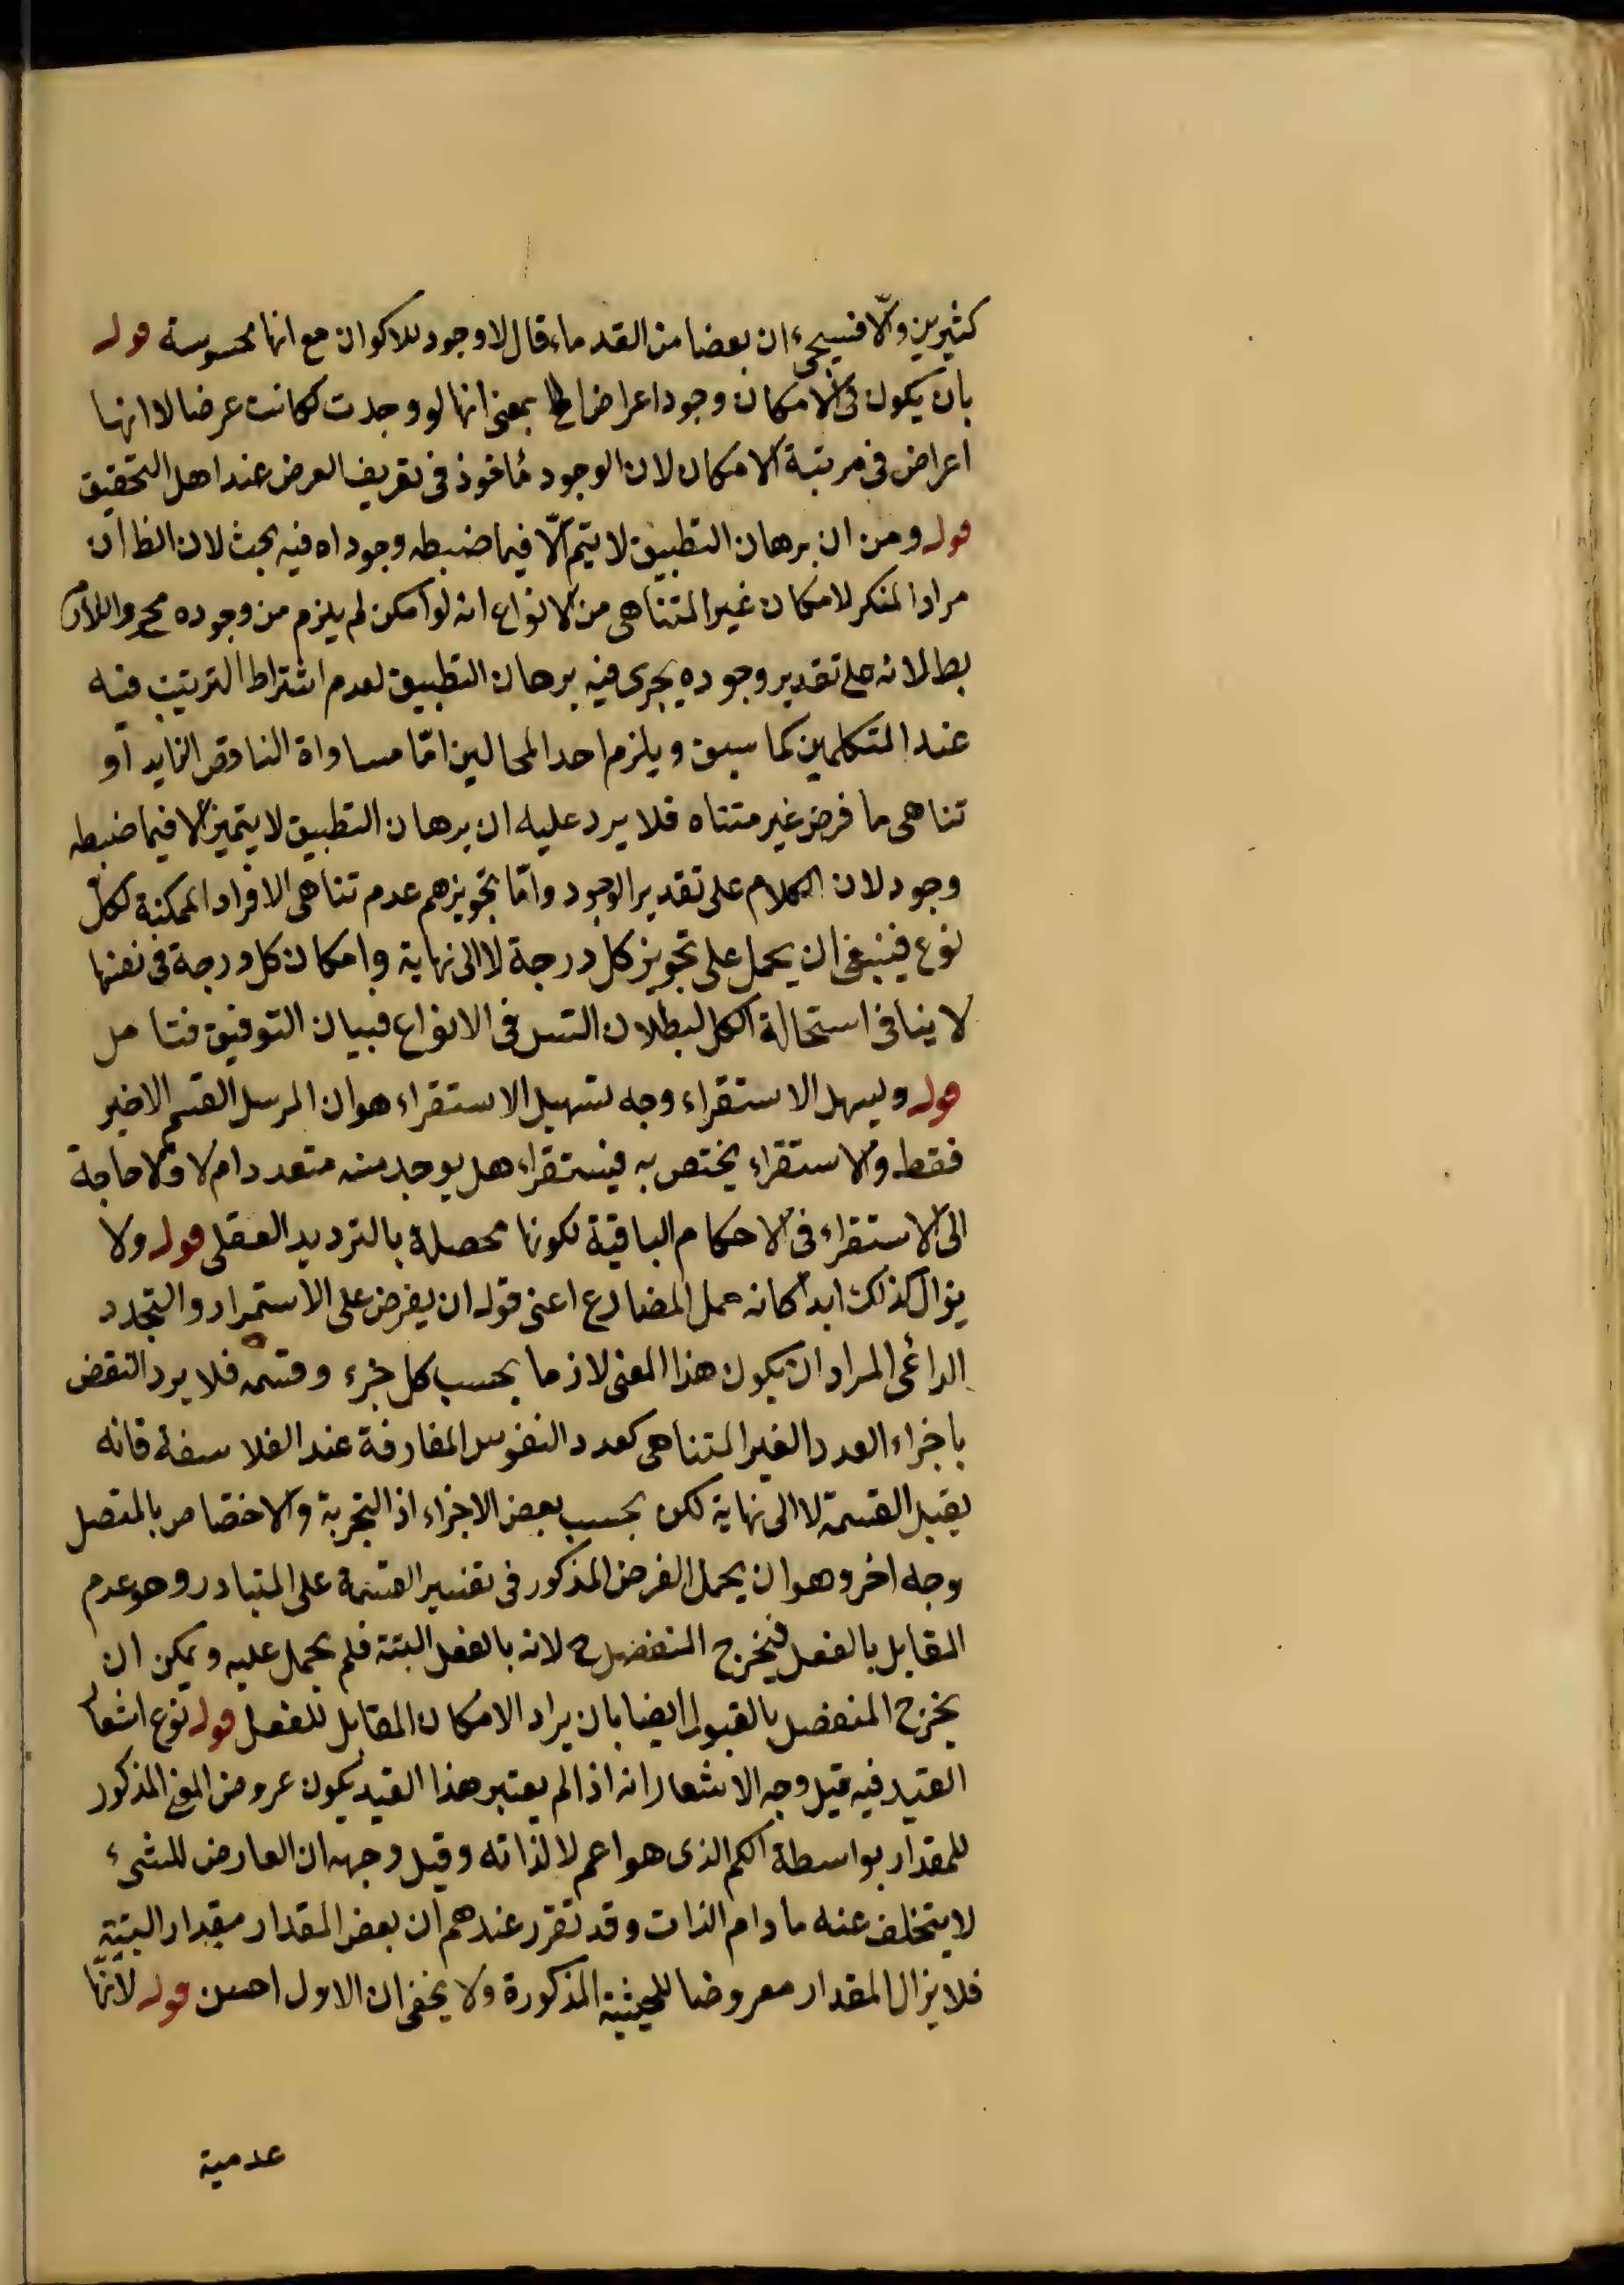 كثيرين والّا فسيجيء ان بعضا من القدماء قال لا وجود للاكوان مع انها محسوسة قوله
بان يكون فى الامكان وجود اعراض الخ بمعنى انها لو وجدت لكانت عرضا لا انها
اعراض فى مرتبة الامكان لان الوجود مأخوذ فى تعريف العرض عند اهل التحقيق
قوله ومن ان برهان التطبيق لا يتم الّا فيما ضبطه وجود اه فيه بحث لان الظ ان
مراد المنكر لامكان غير المتناهى من الانواع انه لو امكن لم يلزم من وجوده مح واللازم
بط لانه على تقدير وجوده يجرى فيه برهان التطبيق لعدم اشتراط الترتيب فيه
عند المتكلمين كما سبق ويلزم احد المحالين امّا مساواة الناقص الزايد او
تناهى ما فرض غير متناه فلا يرد عليه ان برهان التطبيق لا يتميز الا فيما ضبطه
وجود لان الكلام على تقدير الوجود وامّا تجويزهم عدم تناهى الافراد الممكنة لكلّ
نوع فينبغى ان يحمل على تجويز كل درجة لا الى نهاية وامكان كل درجة فى نفسها
لا ينافى استحالة الكل لبطلان التس فى الانواع فبيان التوفيق فتامل
قوله وليسهل الاستقراء وجه تسهيل الاستقراء هو ان المرسل القسم الاخير
فقط والاستقراء يختص به فيستقراء هل يوجد منه متعدد ام لا ولا حاجة
الى الاستقراء فى الاحكام الباقية لكونها محصلة بالترديد العقلى قوله ولا
يزال كذلك ابدا كانه حمل المضارع اعنى قوله ان يفرض على الاستمرار والتجدد
الدائمى المراد ان يكون هذا المعنى لازما بحسب كل جزء وقسمه فلا يرد النقض
باجزاء العدد الغير المتناهى كعدد النفوس المفارقة عند الفلاسفة فانه
يقبل القسمة لا الى نهاية لكن بحسب بعض الاجزاء اذ التجربة والاختصاص بالمتصل
وجه اخر وهو ان يحمل الفرض المذكور فى تفسير القسمة على المتبادر وهو عدم
المقابل بالفعل فيخرج المنفصل ح لانه بالفعل البتة فلم يحمل عليه ويمكن ان
يخرج المنفصل بالقبول ايضا بان يراد الامكان المقابل للفعل قوله نوع اشعار
القيد فيه قيل وجه الاشعار انه اذا لم يعتبر هذا القيد يكون عروض المعنى المذكور
للمقدار بواسطة الكم الذى هو اعم لا لذاته وقيل وجهه ان العارض للشىء
لا يتخلف عنه ما دام الذات وقد تقرر عندهم ان بعض المقدار مقدار البتة
فلا يزال المقدار معروضا للحيثية المذكورة ولا يخفى ان الاول احسن قوله لانّها
عدمية